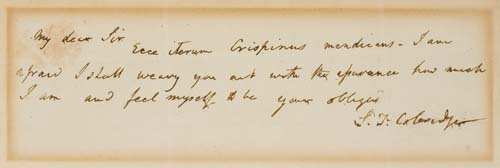 My dear Sir
Ecce iterum Crispinus mendicans - I am
afraid I shall weary you out with the assurance how much
I am and feel myself to be your obliged
S. T. Coleridge